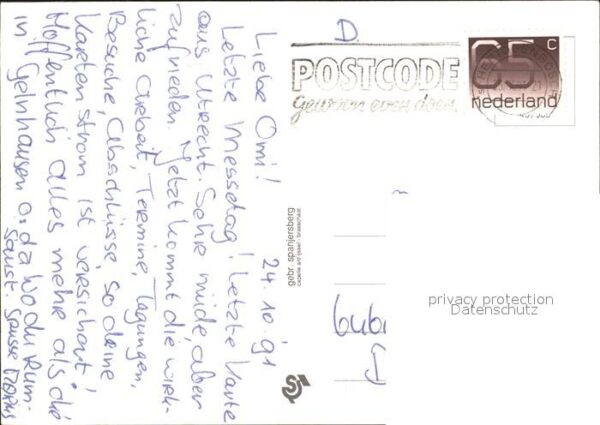 Liebe Omi! 24.10.'91
Letzte Messetag! Letzte Karte
aus Utrecht. Sehr müde, aber
zufrieden. Jetzt kommt die wirk-
liche Arbeit, Termine, Tagungen,
Besuche, Abschlüsse, so deine
Karten strom ist versichert!
Hoffentlich alles mehr als ok
in Gelnhausen o. da wo du rum-
saust.
gebr. spanjersberg
D
POSTCODE
gewoon even doen.
65 c
nederland
646
D
privacy protection
Datenschutz